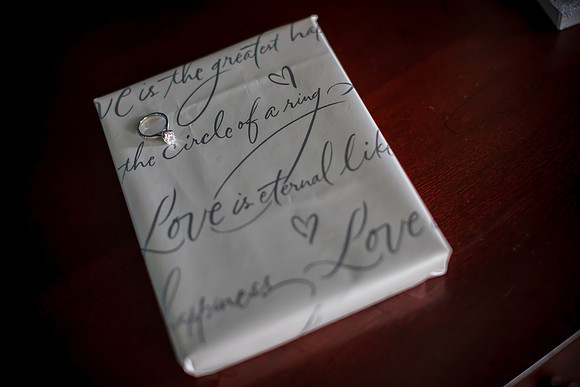 ve is the greatest hap
the circle of a ring
Love is eternal like
happiness Love